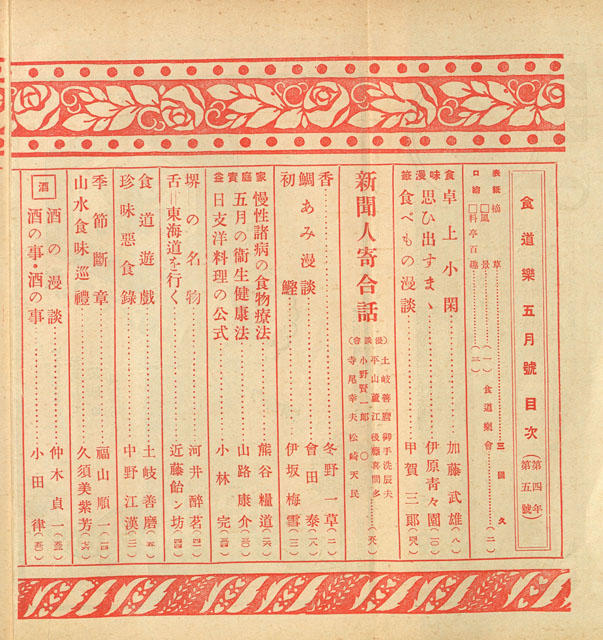 食道樂五月號目次（第四年第五號）
表紙 摘草 三國久
口繪 □風景（一） 食道樂會（二）
□料亭百趣（三）
食味漫筆
卓上小閑 加藤武雄（八）
思ひ出すまゝ 伊原靑々園（一〇）
食べもの漫談 甲賀三郎
新聞人寄合話
（漫談會）
土岐善麿 御手洗辰夫
平山蘆江 後藤喜間多
小野賢一郎 〇
寺尾幸夫 松崎天民
香 冬野一草（二）
鯛あみ漫談 會田泰（一八）
初鰹 伊坂梅雪（三）
家庭實益
慢性諸病の食物療法 熊谷糧道
五月の衞生健康法 山路康介
日支洋料理の公式 小林完
堺の名物 河井醉茗
舌‖東海道を行く 近藤飴ン坊
食道遊戲 土岐善麿
珍味惡食錄 中野江漢
季節斷章 福山順一
山水食味巡禮 久須美紫芳
酒
酒の漫談 仲木貞一
酒の事・酒の事 小田律